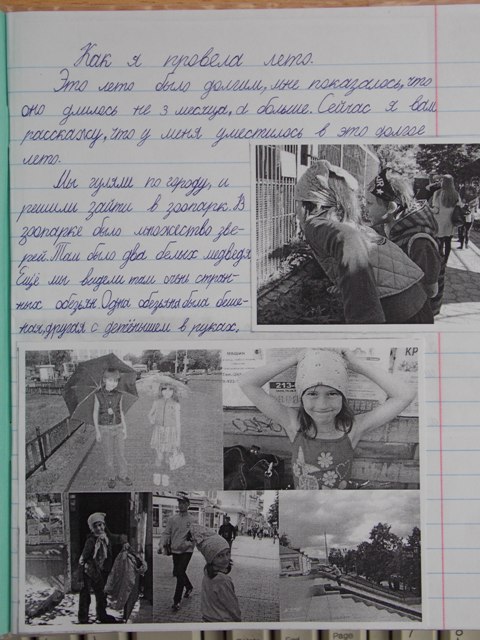 Как я провела лето.
Это лето было долгим, мне показалось, что
оно длилось не 3 месяца, а больше. Сейчас я вам
расскажу, что у меня уместилось в это долгое
лето.
Мы гуляли по городу, и
решили зайти в зоопарк. В
зоопарке было множество зве-
рей. Там было два белых медведя.
Ещё мы видели там очень стран-
ных обезьян. Одна обезьяна была беше-
ная, другая с детёнышем в руках,
КР
213-